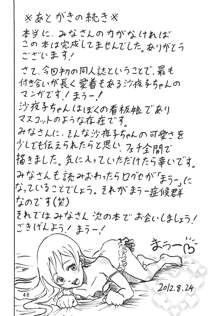 ※あとがきの続き※
本当に、みなさんの力がなければ
この本は完成してませんでした。ありがとう
ございます!
さて、今回初の同人誌ということで、最も
付き合いが長く愛着もある沙夜子ちゃんの
マンガです!まうー!
沙夜子ちゃんはぼくの看板娘であり
マスコットのような存在です。
みなさんに、そんな沙夜子ちゃんの可愛さを
少しでも伝えられたらと思い、
描きました。気に入っていただけたら幸いです。
みなさんも読み終わったら口グセが「まうー」に
なっていることでしょう。それがまうー症候群
なのです(笑)
それではみなさん 次の本でお会いしましょう!
ごきげんよう!まうー!
まうー
2012.8.24